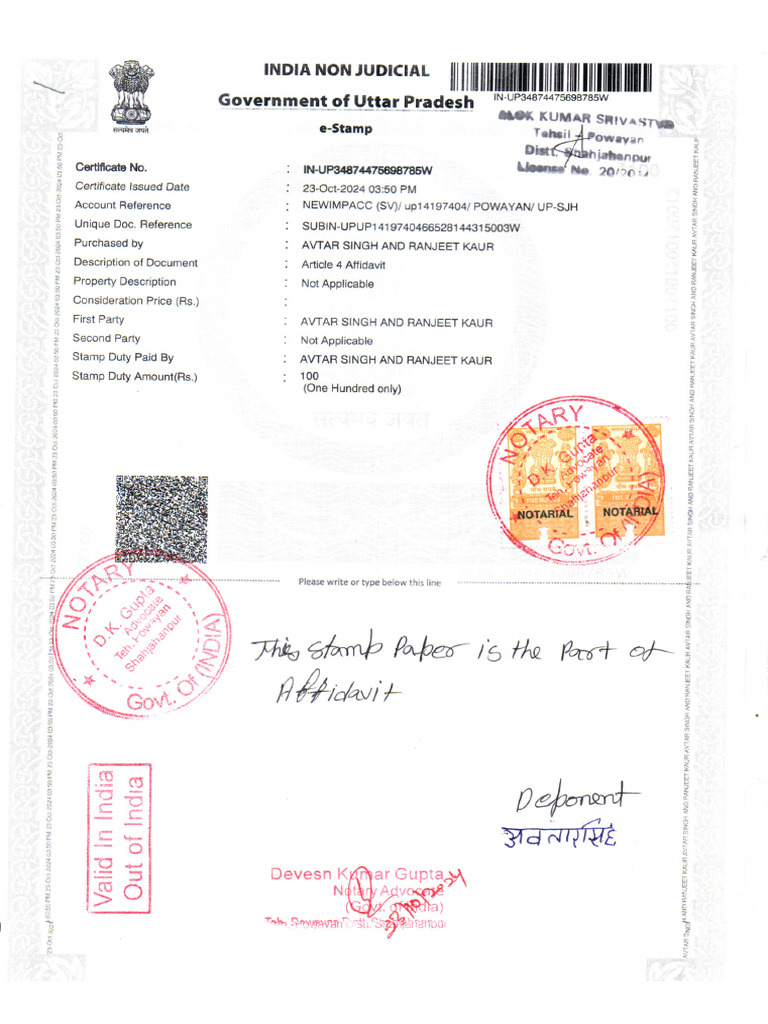 INDIA NON JUDICIAL
Government of Uttar Pradesh
e-Stamp
सत्यमेव जयते
IN-UP34874475698785W
ALOK KUMAR SRIVASTVA
Tehsil - Powayan
Distt. Shahjahanpur
License No. 20/201
Certificate No. : IN-UP34874475698785W
Certificate Issued Date : 23-Oct-2024 03:50 PM
Account Reference : NEWIMPACC (SV)/ up14197404/ POWAYAN/ UP-SJH
Unique Doc. Reference : SUBIN-UPUP1419740466528144315003W
Purchased by : AVTAR SINGH AND RANJEET KAUR
Description of Document : Article 4 Affidavit
Property Description : Not Applicable
Consideration Price (Rs.) :
First Party : AVTAR SINGH AND RANJEET KAUR
Second Party : Not Applicable
Stamp Duty Paid By : AVTAR SINGH AND RANJEET KAUR
Stamp Duty Amount(Rs.) : 100
(One Hundred only)
सत्यमेव जयते
NOTARY
D.K. Gupta
Advocate
Teh. Powayan
Shahjahanpur
Govt. Of (INDIA)
NOTARIAL NOTARIAL
Please write or type below this line
NOTARY
D.K. Gupta
Advocate
Teh. Powayan
Shahjahanpur
Govt. Of (INDIA)
This Stamp Paper is the Part of
Affidavit
Deponent
अवतारसिंह
Valid In India
Out of India
Devesn Kumar Gupta
Notary Advocate
(Govt. of India)
Teh. Powayan Distt. Shahjahanpur
23/10/2024